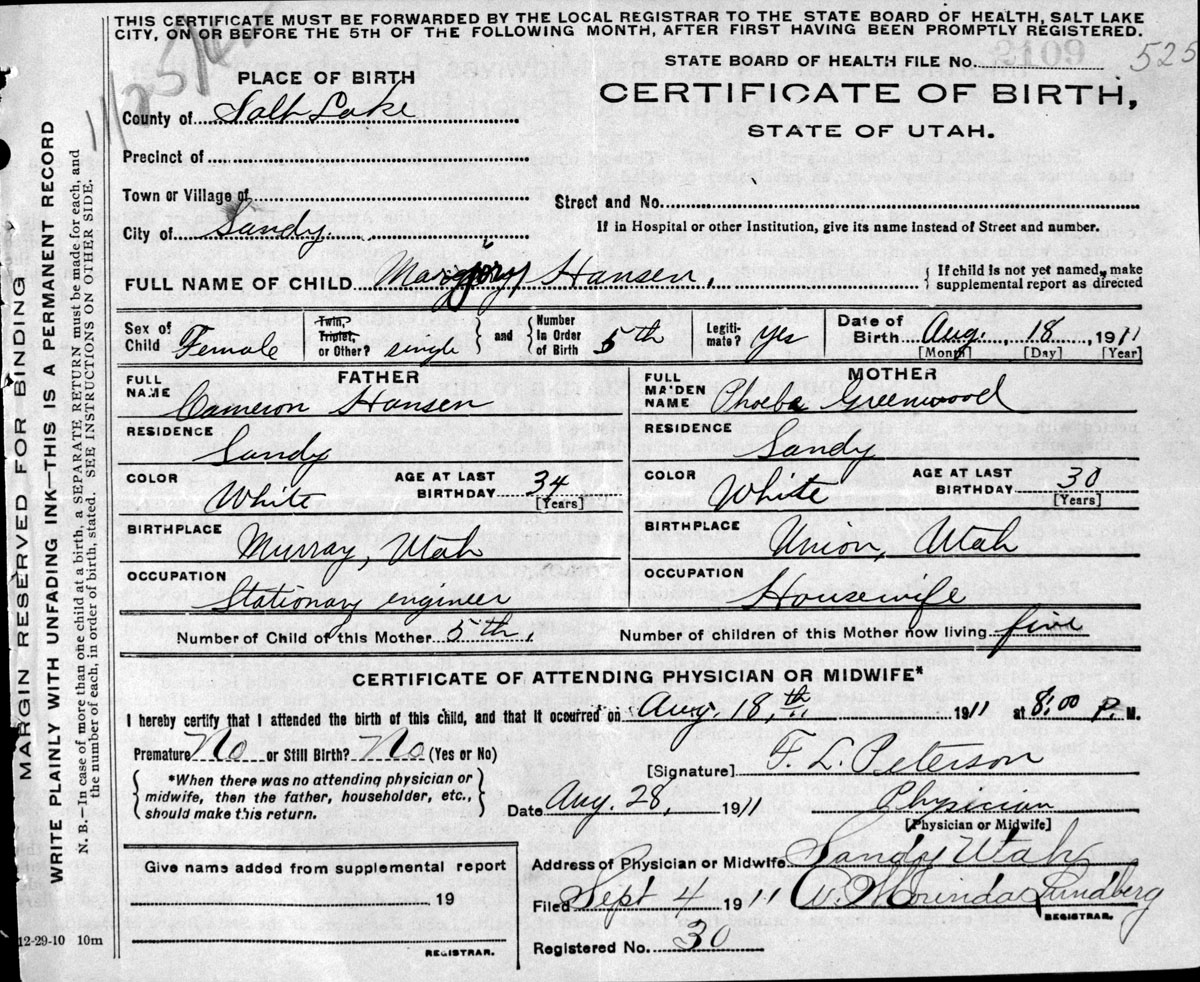 THIS CERTIFICATE MUST BE FORWARDED BY THE LOCAL REGISTRAR TO THE STATE BOARD OF HEALTH, SALT LAKE
CITY, ON OR BEFORE THE 5TH OF THE FOLLOWING MONTH, AFTER FIRST HAVING BEEN PROMPTLY REGISTERED.
STATE BOARD OF HEALTH FILE No. 2109 525
PLACE OF BIRTH
CERTIFICATE OF BIRTH,
STATE OF UTAH.
County of Salt Lake
Precinct of
Town or Village of
Street and No.
City of Sandy.
If in Hospital or other Institution, give its name instead of Street and number.
FULL NAME OF CHILD Margjory Hansen,
If child is not yet named, make
supplemental report as directed
Sex of Child Female
Twin, Triplet, or Other? single
and Number In Order of Birth 5th
Legitimate? yes
Date of Birth Aug. 18, 1911
[Month] [Day] [Year]
FATHER
FULL NAME Cameron Hansen
RESIDENCE Sandy
COLOR White AGE AT LAST BIRTHDAY 34 [Years]
BIRTHPLACE Murray, Utah
OCCUPATION Stationary engineer
MOTHER
FULL MAIDEN NAME Phoebe Greenwood
RESIDENCE Sandy
COLOR White AGE AT LAST BIRTHDAY 30 [Years]
BIRTHPLACE Union, Utah
OCCUPATION Housewife
Number of Child of this Mother 5th, Number of children of this Mother now living five
CERTIFICATE OF ATTENDING PHYSICIAN OR MIDWIFE*
I hereby certify that I attended the birth of this child, and that it occurred on Aug. 18,th 1911 at 8:00 P. M.
Premature No or Still Birth? No (Yes or No)
*When there was no attending physician or
midwife, then the father, householder, etc.,
should make this return.
[Signature] F. L. Peterson
Date Aug. 28, 1911 Physician
[Physician or Midwife]
Address of Physician or Midwife Sandy Utah
Give name added from supplemental report
19
REGISTRAR.
Filed Sept 4 1911 Lundberg
REGISTRAR.
Registered No. 30
12-29-10 10m
MARGIN RESERVED FOR BINDING
WRITE PLAINLY WITH UNFADING INK—THIS IS A PERMANENT RECORD
N. B.—In case of more than one child at a birth, a SEPARATE RETURN must be made for each, and
the number of each, in order of birth, stated. SEE INSTRUCTIONS ON OTHER SIDE.